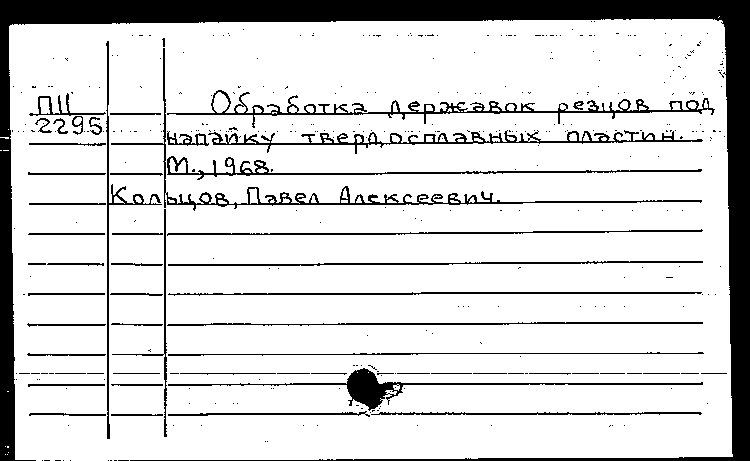 П11 Обработка державок резцов под
2295 напайку твердосплавных пластин.
М., 1968.
Кольцов, Павел Алексеевич.